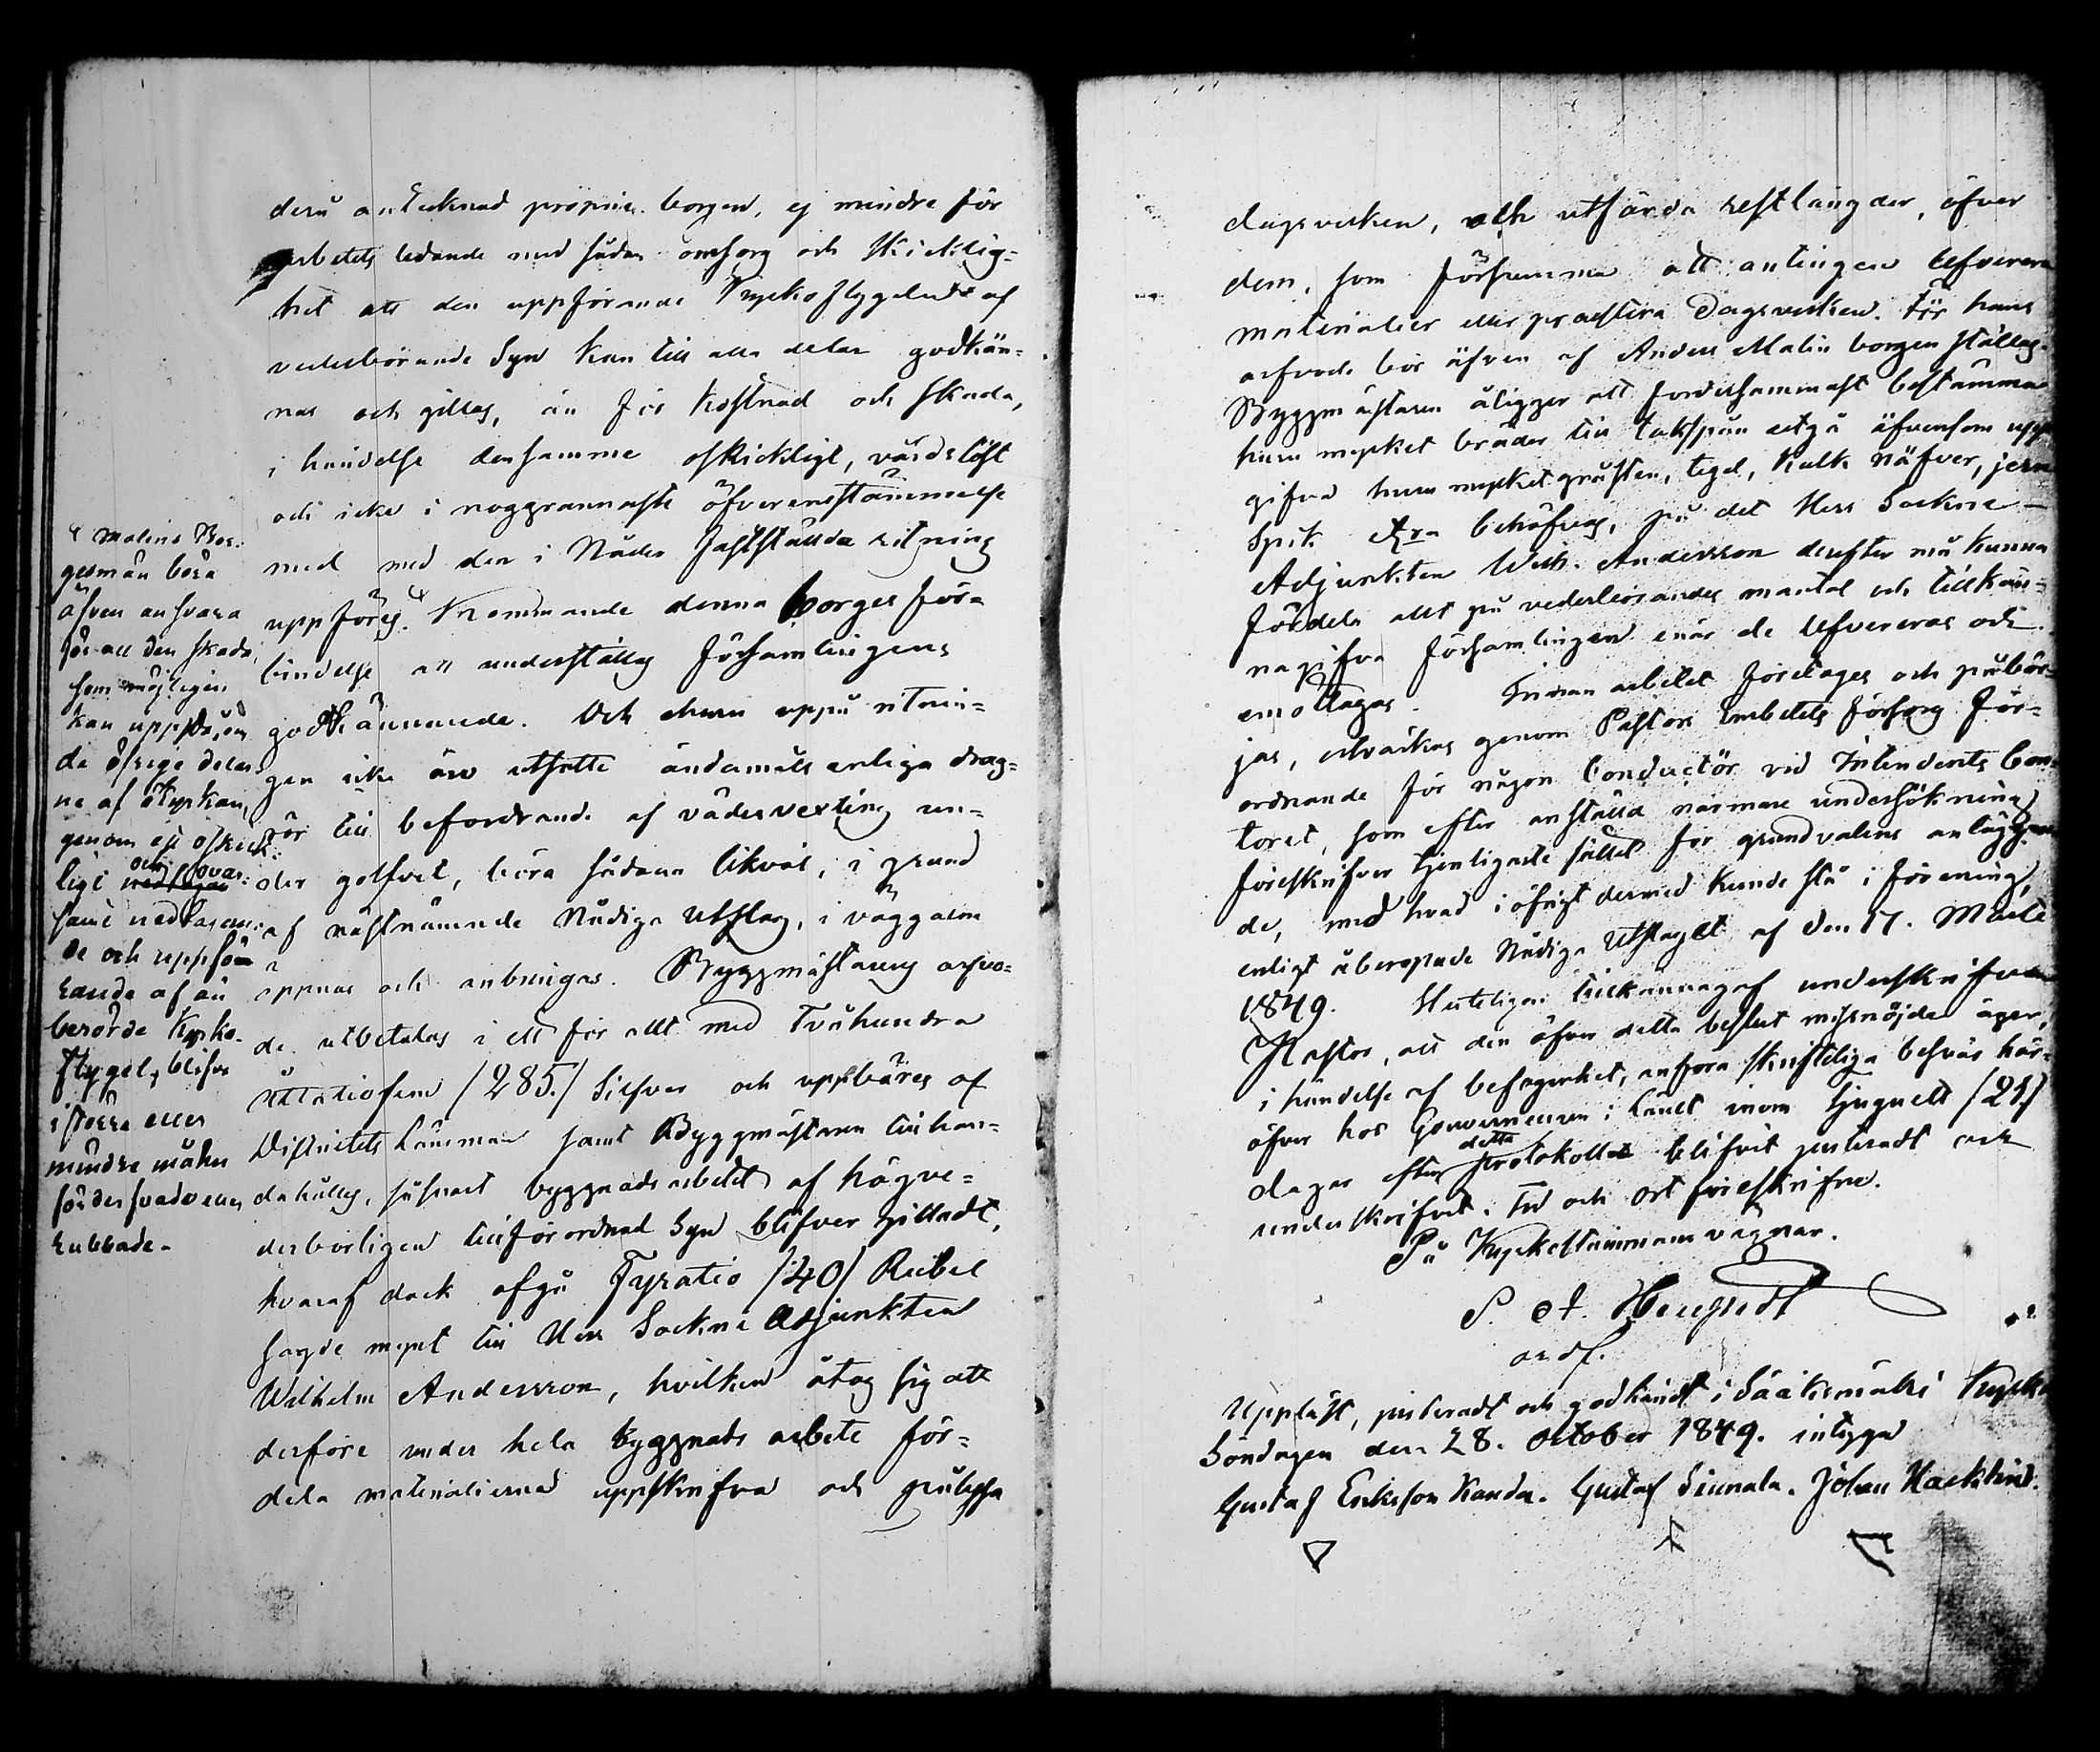 derå antecknad proprie borgen, ej mindre för
arbetets ledande med sådan omsorg och skicklig-
het att den uppförande Kyrkoflygeln af
vederbörande Syn kan till alla delar godkän-
nas och gillas, än för kostnad och skada,
i händelse densamme oskickligt, vårdslöst
och icke i noggrannaste öfverensstämmelse
med med den i Nåder fastställda ritning
uppföres. Kommande denna borges för-
bindelse att underställas Församlingens
godkännande. Och ehuru uppå ritnin-
gen icke äro utsatte ändamålsenliga drag-
rör till befordrande af vädervexling un-
der golfvet, böra sådana likväl, i grund
af nästnämnde Nådiga Utslag, i väggarne
öppnas och anbringas. Byggmästarens arfvo-
de utbetalas i ett för allt med Tvåhundra
åttatiofem /285./ Silfver och uppbäres af
Districtets Länsman samt Byggmästaren tillhan-
dahålles, såsnart byggnads arbetet af högve-
derbörligen tillförordnad Syn blifver gilladt,
hvaraf dock afgå Fyratio /40/ Rubel
sagde mynt till Herr Sockne Adjunkten
Wilhelm Andersson, hvilken åtog sig att
derföre under hela byggnads arbete för-
dela materialierna uppskrifva och pålysa
& Malins Bor-
gesmän böra
äfven ansvara
för all den skada,
som möjligen
kan uppstå, om
de öfrige delar-
ne af Kyrkan,
genom ett oskick-
ligt och ovar-
samt nedtagan-
de och uppfö-
rande af an
berörde Kyrko-
flygel, blifva
i större eller
mindre mån
förderfvade eller
rubbade.
dagsverken, och utfärda restlängder, öfver
dem, som försumma att antingen lefverera
materialier eller praestera Dagsverken. För hans
arfvode bör äfven af Anders Malin borgen ställas.
Byggmästaren åligger att fordersammast bestämma
huru mycket bräder till takspån åtgå äfvensom upp
gifva huru mycket gråsten, tegel, kalk näfver, jern
Spik etc:ra behöfves, på det Herr Sockne-
Adjunkten Wilh. Andersson derefter må kunna
fördela allt på vederbörandes mantal och tillkän-
nagifva Församlingen enär de lefvereras och
emottagas. Innan arbetet företages och påbör-
jas, utverkas genom Pastors Embetets försorg för-
ordnande för någon Conductör vid Intendents Con-
toret, som efter anställd närmare undersökning
föreskrifver tjenligaste sättet för grundvalens anläggan
de, med hvad i öfrigt dermed kunde stå i förening,
enligt åberopade Nådiga Utslaget af den 17. Martii
1849. Slutligen tillkännagaf underskrifven
Pastor, att den öfver detta beslut missnöjde äger,
i händelse af befogenhet, anföra skriftliga besvär här-
öfver hos Gouverneuren i Länet inom tjuguett /21/
dagar efter detta protokollet blifvit justeradt och
underskrifvet. Tid och ort föreskrifne.
På Kyrkostämmans vägnar.
ordf.
Uppläst, justeradt och godkändt i Sääksmäki Kyrka
Söndagen den 28. October 1849. intyga
Gustaf Eriksson Kanda. Gustaf Sinnala. Johan Kacklind.